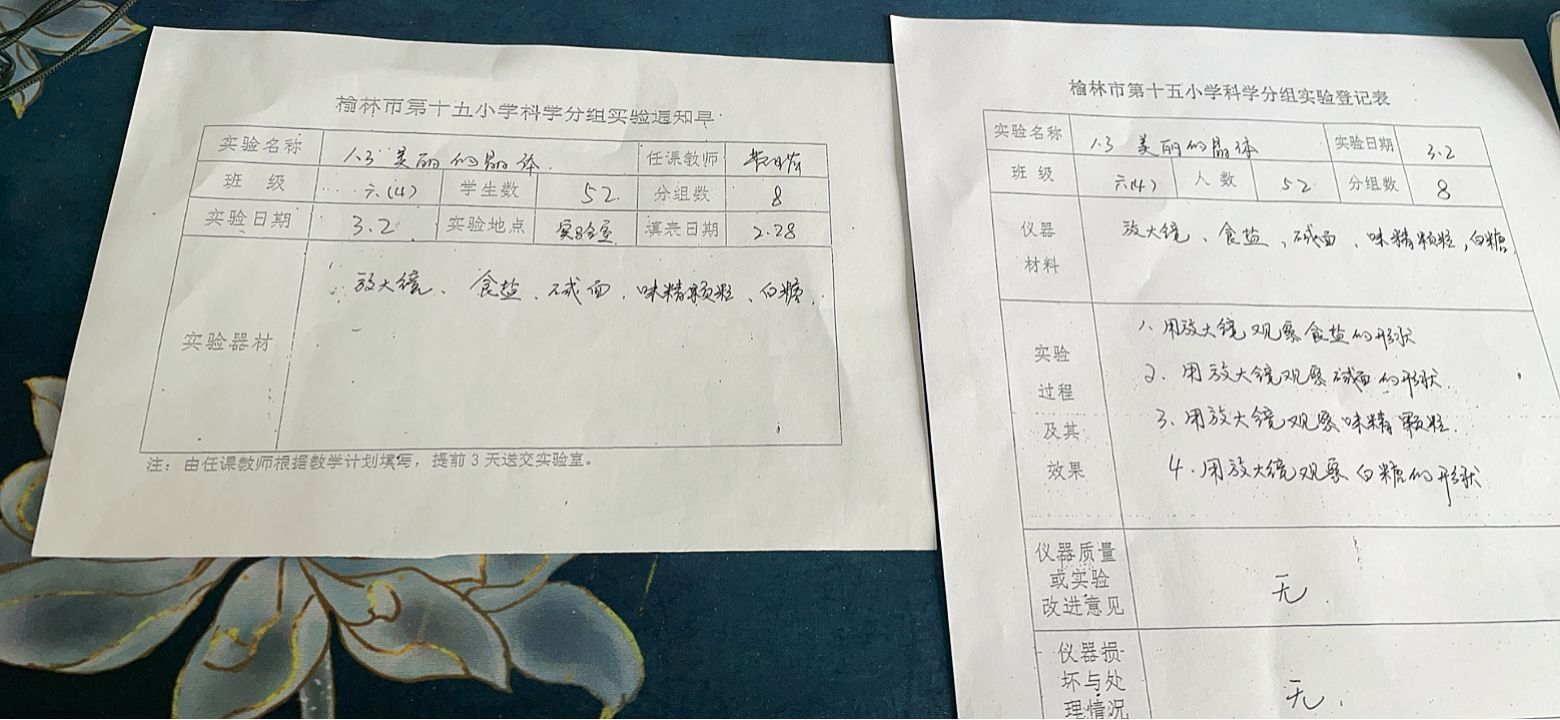 榆林市第十五小学科学分组实验通知单
实验名称 1.3 美丽的晶体. 任课教师
班 级 六(4) 学生数 52 分组数 8
实验日期 3.2. 实验地点 实验室 填表日期 2.28
实验器材 放大镜、食盐、碱面、味精颗粒、白糖.
注：由任课教师根据教学计划填写，提前3天送交实验室。
榆林市第十五小学科学分组实验登记表
实验名称 1.3 美丽的晶体 实验日期 3.2
班 级 六(4) 人 数 52 分组数 8
仪器
材料
放大镜、食盐、碱面、味精颗粒,白糖.
实验
过程
及其
效果
1. 用放大镜观察食盐的形状
2. 用放大镜观察碱面的形状.
3. 用放大镜观察味精颗粒.
4. 用放大镜观察白糖的形状
仪器质量
或实验
改进意见
无.
仪器损
坏与处
理情况
无.